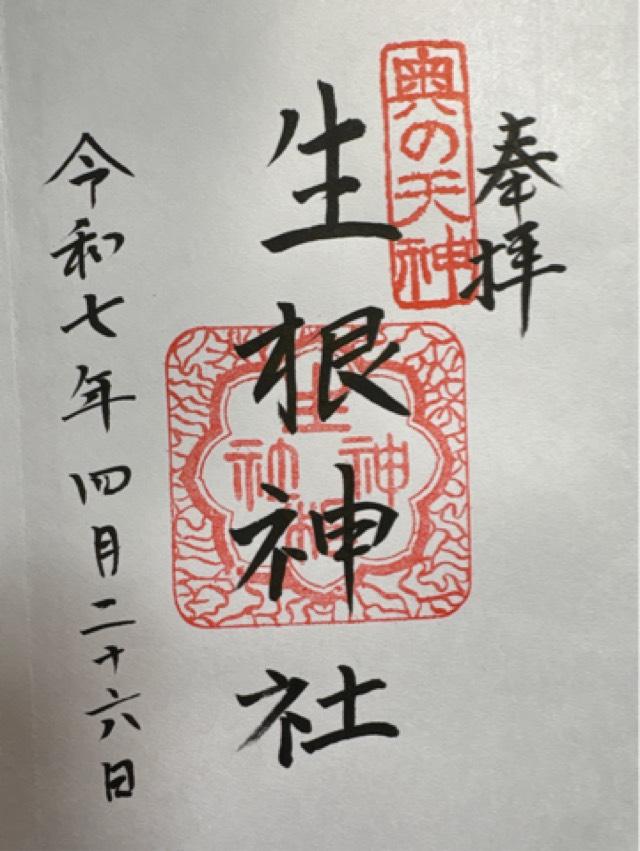 奉拝
奥の天神
生根神社
生根神社
令和七年四月二十六日